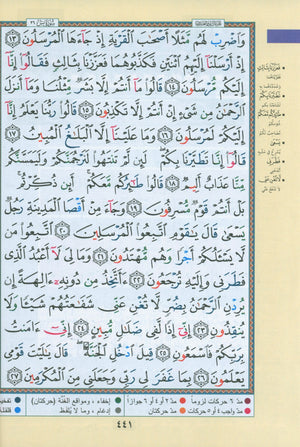 سورة يس ٣٦
وَاضْرِبْ لَهُم مَّثَلًا أَصْحَٰبَ الْقَرْيَةِ إِذْ جَآءَهَا الْمُرْسَلُونَ ١٣
إِذْ أَرْسَلْنَآ إِلَيْهِمُ اثْنَيْنِ فَكَذَّبُوهُمَا فَعَزَّزْنَا بِثَالِثٍ فَقَالُوٓا۟ إِنَّآ
إِلَيْكُم مُّرْسَلُونَ ١٤ قَالُوا۟ مَآ أَنتُمْ إِلَّا بَشَرٌ مِّثْلُنَا وَمَآ أَنزَلَ
الرَّحْمَٰنُ مِن شَىْءٍ إِنْ أَنتُمْ إِلَّا تَكْذِبُونَ ١٥ قَالُوا۟ رَبُّنَا يَعْلَمُ إِنَّآ
إِلَيْكُمْ لَمُرْسَلُونَ ١٦ وَمَا عَلَيْنَآ إِلَّا الْبَلَٰغُ الْمُبِينُ ١٧
قَالُوٓا۟ إِنَّا تَطَيَّرْنَا بِكُمْ لَئِن لَّمْ تَنتَهُوا۟ لَنَرْجُمَنَّكُمْ وَلَيَمَسَّنَّكُم
مِّنَّا عَذَابٌ أَلِيمٌ ١٨ قَالُوا۟ طَٰٓئِرُكُم مَّعَكُمْ أَئِن ذُكِّرْتُم
بَلْ أَنتُمْ قَوْمٌ مُّسْرِفُونَ ١٩ وَجَآءَ مِنْ أَقْصَا الْمَدِينَةِ رَجُلٌ
يَسْعَىٰ قَالَ يَٰقَوْمِ اتَّبِعُوا۟ الْمُرْسَلِينَ ٢٠ اتَّبِعُوا۟ مَن
لَّا يَسْـَٔلُكُمْ أَجْرًا وَهُم مُّهْتَدُونَ ٢١ وَمَا لِىَ لَآ أَعْبُدُ الَّذِى
فَطَرَنِى وَإِلَيْهِ تُرْجَعُونَ ٢٢ ءَأَتَّخِذُ مِن دُونِهِۦٓ ءَالِهَةً إِن
يُرِدْنِ الرَّحْمَٰنُ بِضُرٍّ لَّا تُغْنِ عَنِّى شَفَٰعَتُهُمْ شَيْـًٔا وَلَا
يُنقِذُونِ ٢٣ إِنِّىٓ إِذًا لَّفِى ضَلَٰلٍ مُّبِينٍ ٢٤ إِنِّىٓ ءَامَنتُ
بِرَبِّكُمْ فَاسْمَعُونِ ٢٥ قِيلَ ادْخُلِ الْجَنَّةَ قَالَ يَٰلَيْتَ قَوْمِى
يَعْلَمُونَ ٢٦ بِمَا غَفَرَ لِى رَبِّى وَجَعَلَنِى مِنَ الْمُكْرَمِينَ ٢٧
مدّ ٦ حركات لزوماً مدّ ٢ أو ٤ أو ٦ جوازاً إخفاء، ومواقع الغُنَّة (حركتان) تفخيم
مدّ واجب ٤ أو ٥ حركات مدّ حركتان إدغام، وما لا يُلفَظ قلقلة
٤٤١